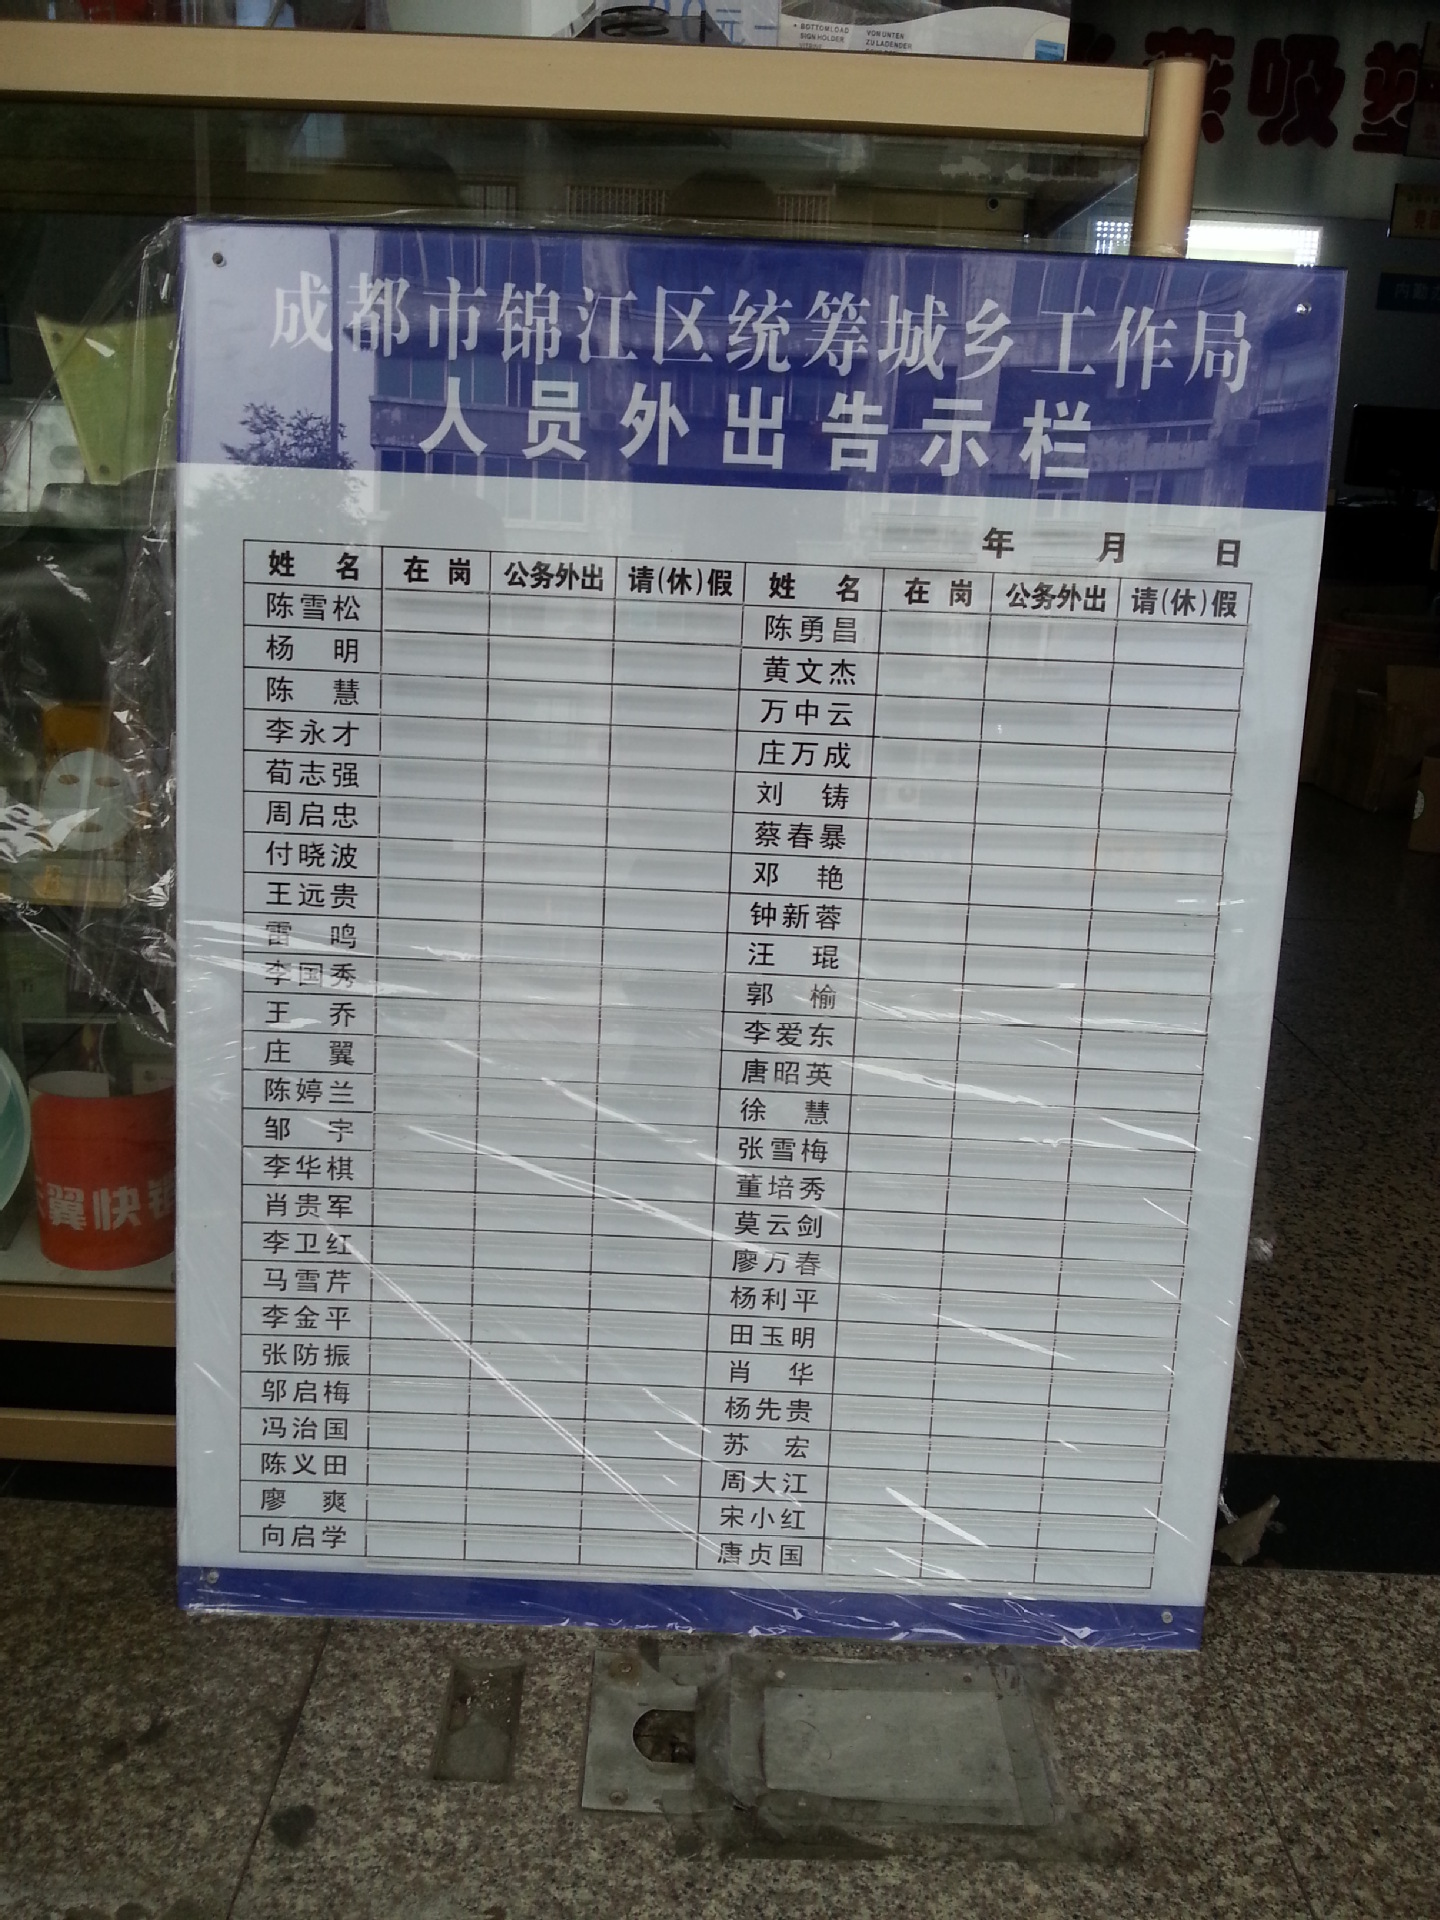 BOTTOMLOAD
SIGN HOLDER
VON UNTEN
ZU LADENDER
吸塑
成都市锦江区统筹城乡工作局
人员外出告示栏
年 月 日
姓 名 在 岗 公务外出 请(休)假 姓 名 在 岗 公务外出 请(休)假
陈雪松 陈勇昌
杨 明 黄文杰
陈 慧 万中云
李永才 庄万成
荀志强 刘 铸
周启忠 蔡春暴
付晓波 邓 艳
王远贵 钟新蓉
雷 鸣 汪 琨
李国秀 郭 榆
王 乔 李爱东
庄 翼 唐昭英
陈婷兰 徐 慧
邹 宇 张雪梅
李华棋 董培秀
肖贵军 莫云剑
李卫红 廖万春
马雪芹 杨利平
李金平 田玉明
张防振 肖 华
邬启梅 杨先贵
冯治国 苏 宏
陈义田 周大江
廖 爽 宋小红
向启学 唐贞国
翼快